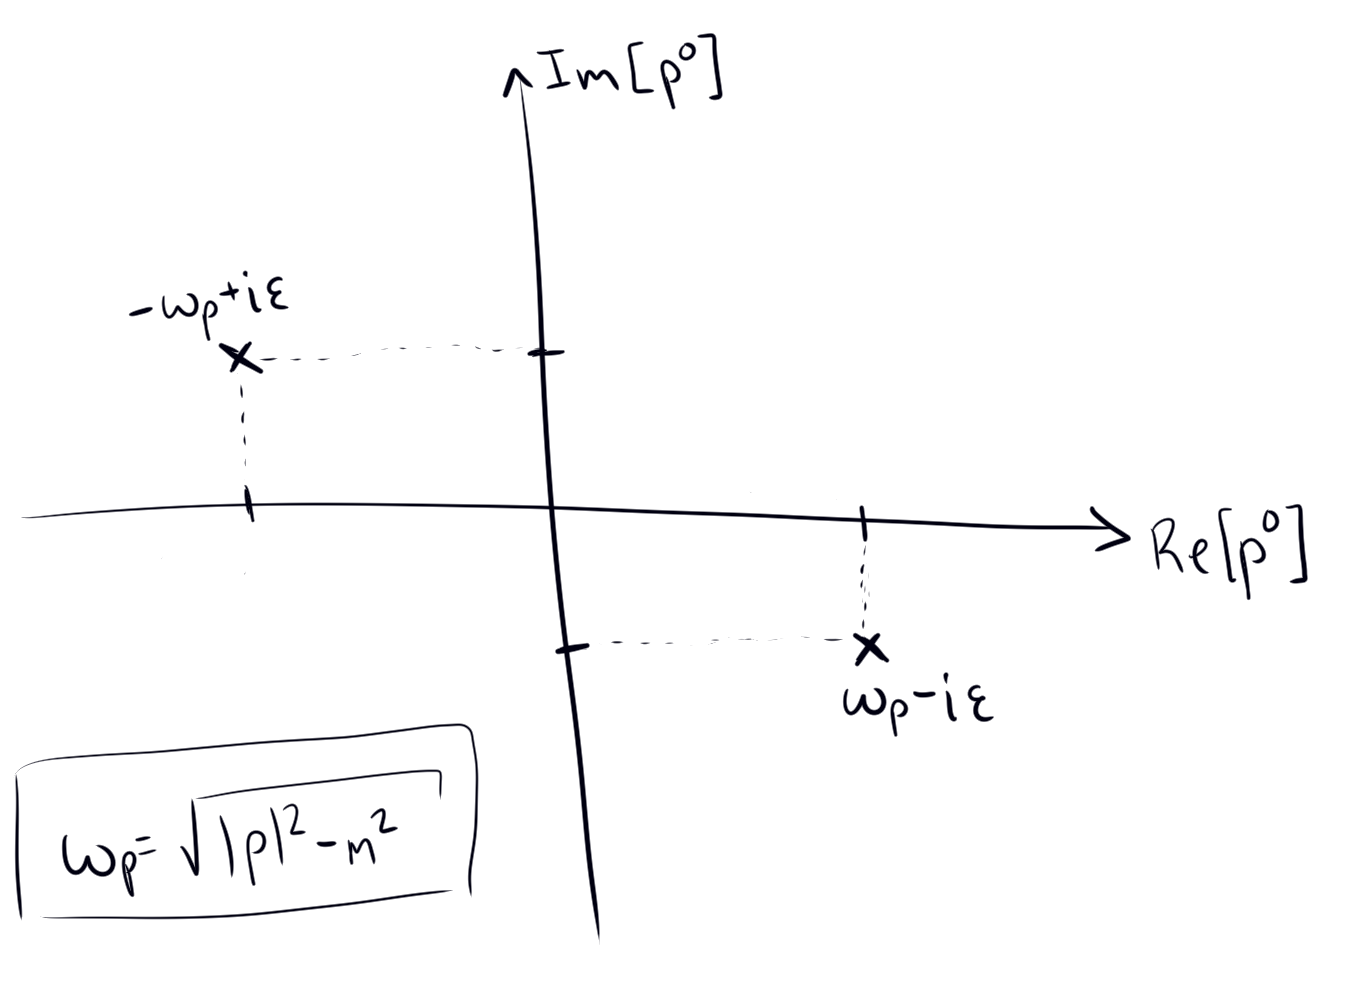 Im[p⁰]
-ωₚ+iε
Re[p⁰]
ωₚ-iε
ωₚ=√|p|²-m²